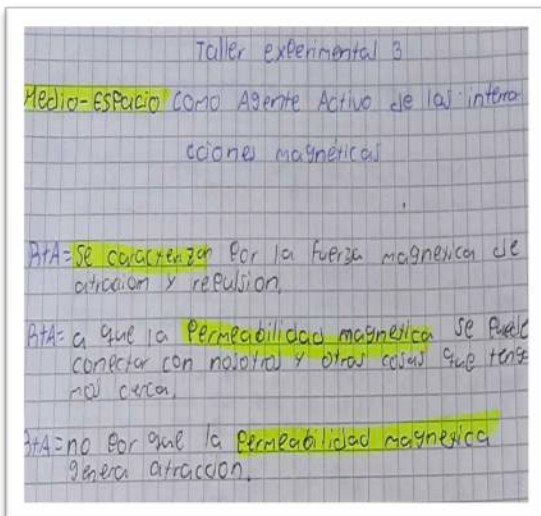 Taller experimental 3
Medio-Espacio como Agente Activo de las interra
cciones magnéticas
R+A= se caracterizan por la fuerza magnetica de
atraccion y repulsion.
R+A= a que la Permeabilidad magnetica se puede
conectar con nosotros y otras cosas que tene
mos cerca.
R+A= no por que la Permeabilidad magnetica
genera atraccion.